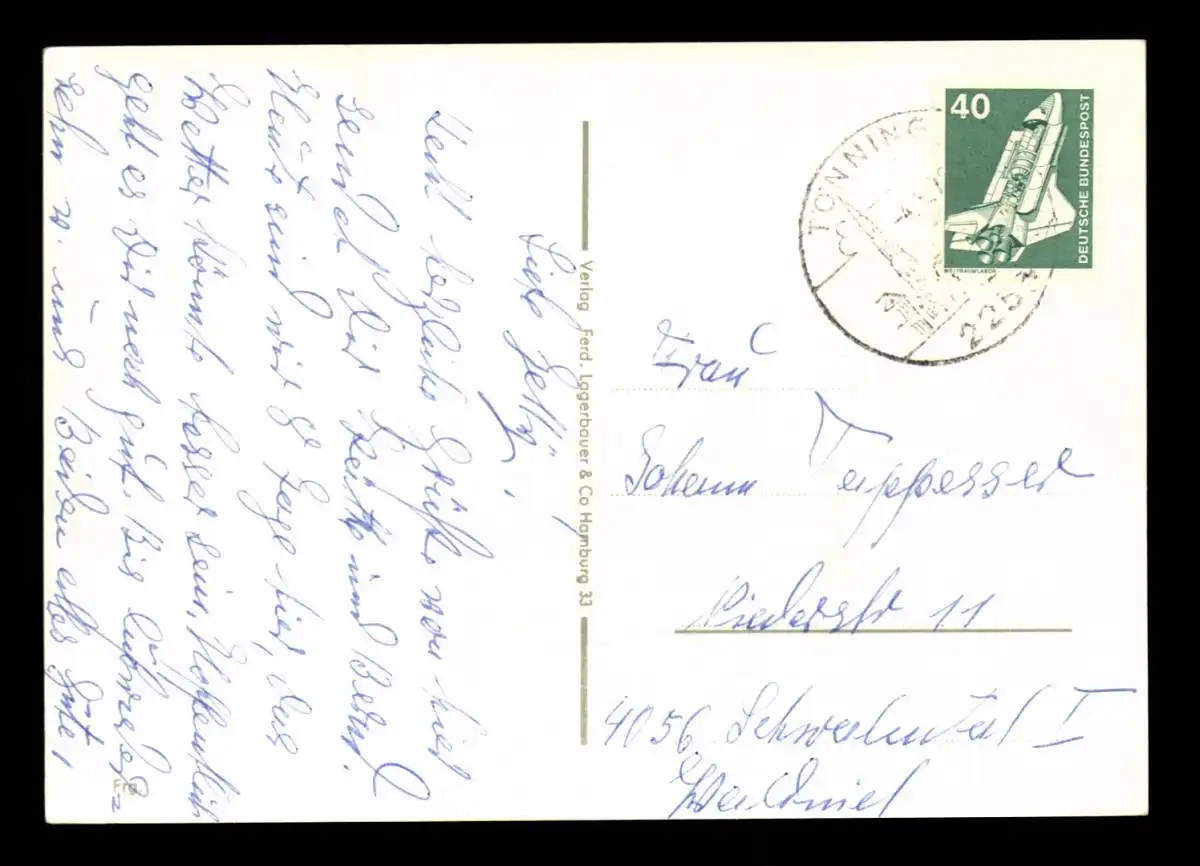 Liebe Hetty,
Sehr herzliche Grüße von hier
sendet Dir Käthe und Bernd.
Heute sind wir 8 Tage hier, das
Wetter könnte besser sein, Hoffentlich
geht es Dir noch gut. Bis auf Wieder=
sehn u. uns Beiden alles Gute,
Frg.
Verlag Ferd. Lagerbauer & Co Hamburg 33
40
DEUTSCHE BUNDESPOST
WELTRAUMLABOR
TÖNNING
2253
Frau
Johann Tappesser
Riederstr 11
4056 Schwalmtal I
Waldniel